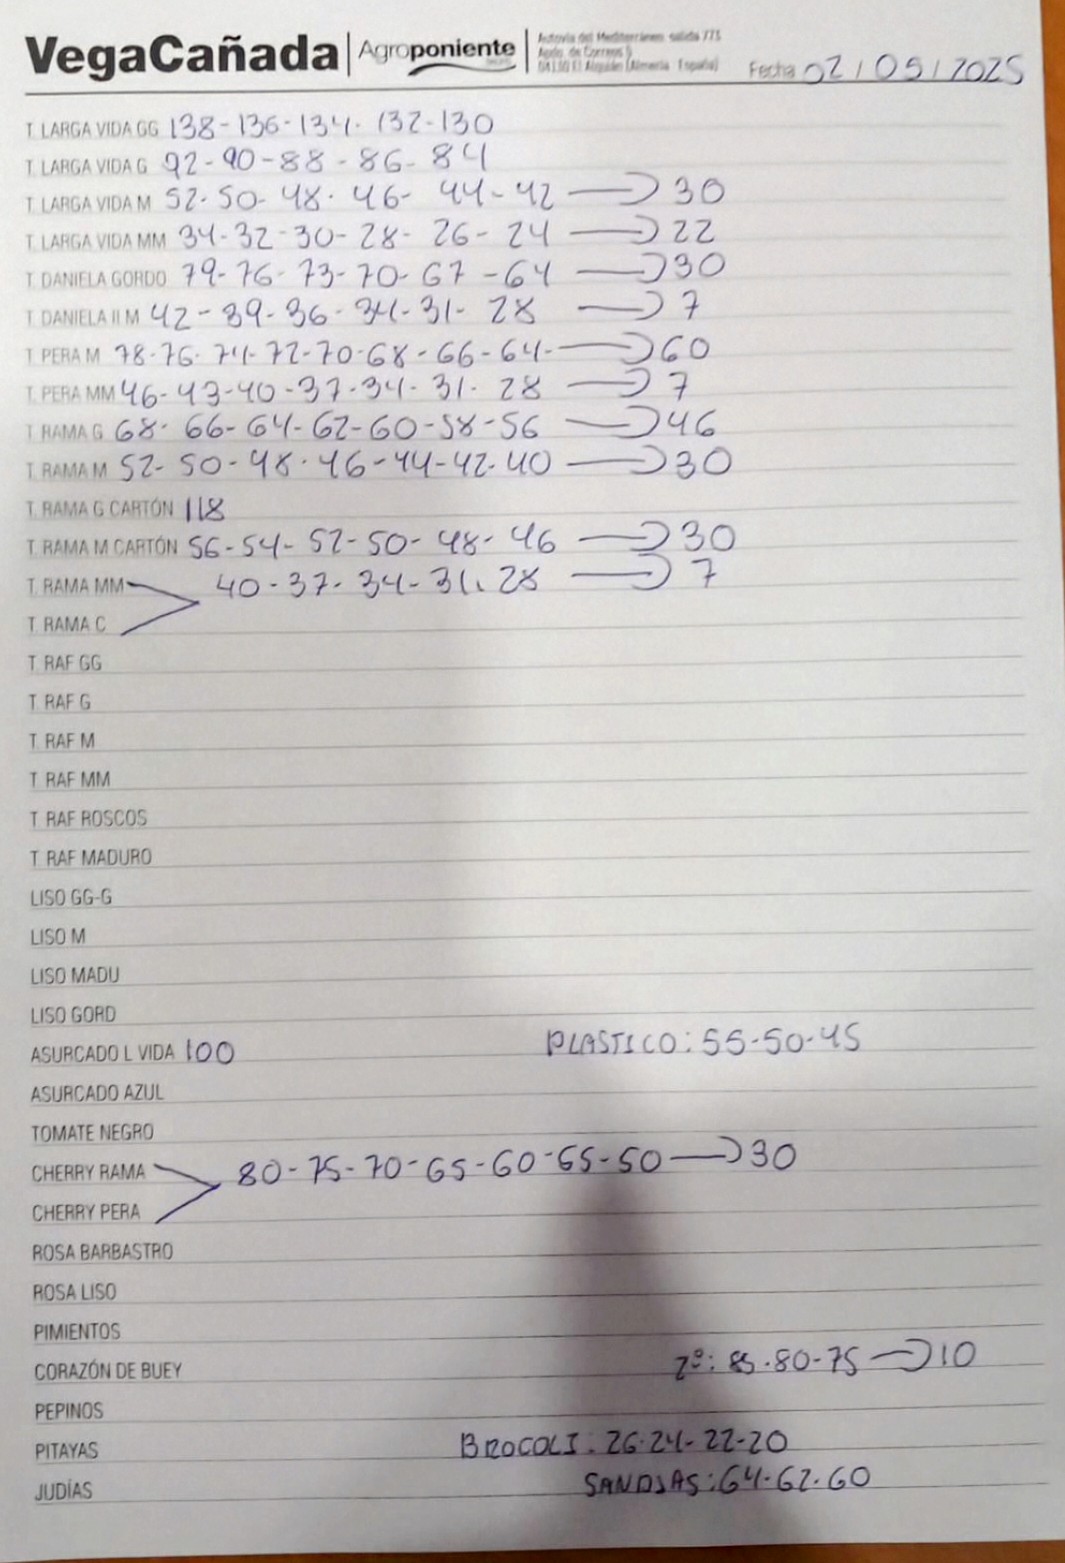 VegaCañada | Agroponiente
Autovía del Mediterráneo, salida 773
Apdo. de Correos 5
04130 El Alquián (Almería España)
Fecha 02/05/2025
T. LARGA VIDA GG 138-136-134-132-130
T. LARGA VIDA G 92-90-88-86-84
T. LARGA VIDA M 52-50-48-46-44-42 → 30
T. LARGA VIDA MM 34-32-30-28-26-24 → 22
T. DANIELA GORDO 79-76-73-70-67-64 → 30
T. DANELA II M 42-39-36-34-31-28 → 7
T. PERA M 78-76-74-72-70-68-66-64- → 60
T. PERA MM 46-43-40-37-34-31-28 → 7
T. RAMA G 68-66-64-62-60-58-56 → 46
T. RAMA M 52-50-48-46-44-42-40 → 30
T. RAMA G CARTÓN 118
T. RAMA M CARTÓN 56-54-52-50-48-46 → 30
T. RAMA MM 40-37-34-31-28 → 7
T. RAMA C
T. RAF GG
T. RAF G
T. RAF M
T. RAF MM
T. RAF ROSCOS
T. RAF MADURO
LISO GG-G
LISO M
LISO MADU
LISO GORD
ASURCADO L VIDA 100 PLASTICO: 55-50-45
ASURCADO AZUL
TOMATE NEGRO
CHERRY RAMA 80-75-70-65-60-55-50 → 30
CHERRY PERA
ROSA BARBASTRO
ROSA LISO
PIMIENTOS
CORAZÓN DE BUEY 2º: 85-80-75 → 10
PEPINOS
PITAYAS BROCOLI: 26-24-22-20
JUDÍAS SANDIAS: 64-62-60